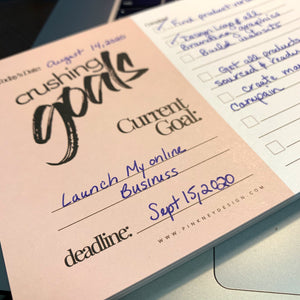 Today's Date: August 14, 2020
crushing
goals
Current
Goal:
Launch My online
Business
Sept 15, 2020
deadline:
WWW.PINKNEYDESIGN.COM
Find product
Design Logo &
Branding Graphics
Build Website
Get all products
sourced & ready
create
Campain